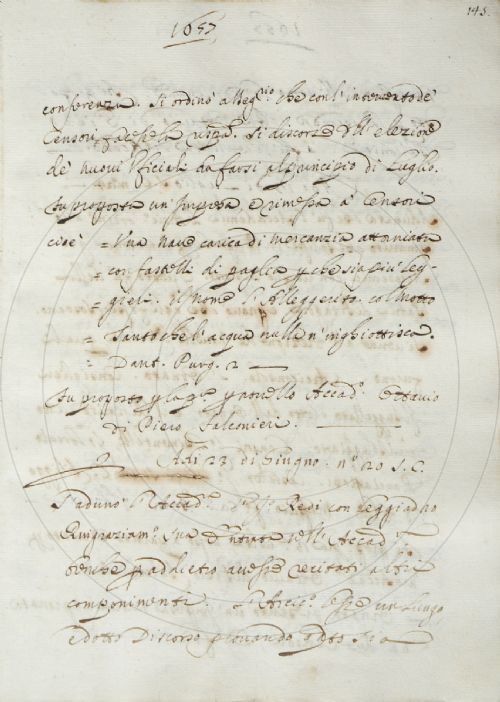 145.
1657
conferenza. Si ordinò al Seg.rio che con l'intervento de
Censori facesse la Si discorse dell'elezione
de nuovi Ufficiali da farsi al principio di Luglio.
Fu proposta un'Impresa e rimessa à Censori
cioè = Una Nave carica di mercanzia attorniata
= con fastelli di paglia p che sia più leg-
= gieri. il nome l'Alleggerito. col Motto
= Tanto che l'acqua nulla n'inghiottiva.
= Dant. Purg. 2 —
Fu proposto p la p.a p novello Accad.o Ottavio
di Piero Falconieri.
Adi 23 di Giugno. n.o 20 S. C.
S'adunò l'Accad.a Il S.r Redi con leggiadro
Ringraziam.o sua entrata nell'Accad.a
benche p addietro avesse recitati altri
componimenti. L'Arcic.o lesse un lungo
e dotto Discorso provando